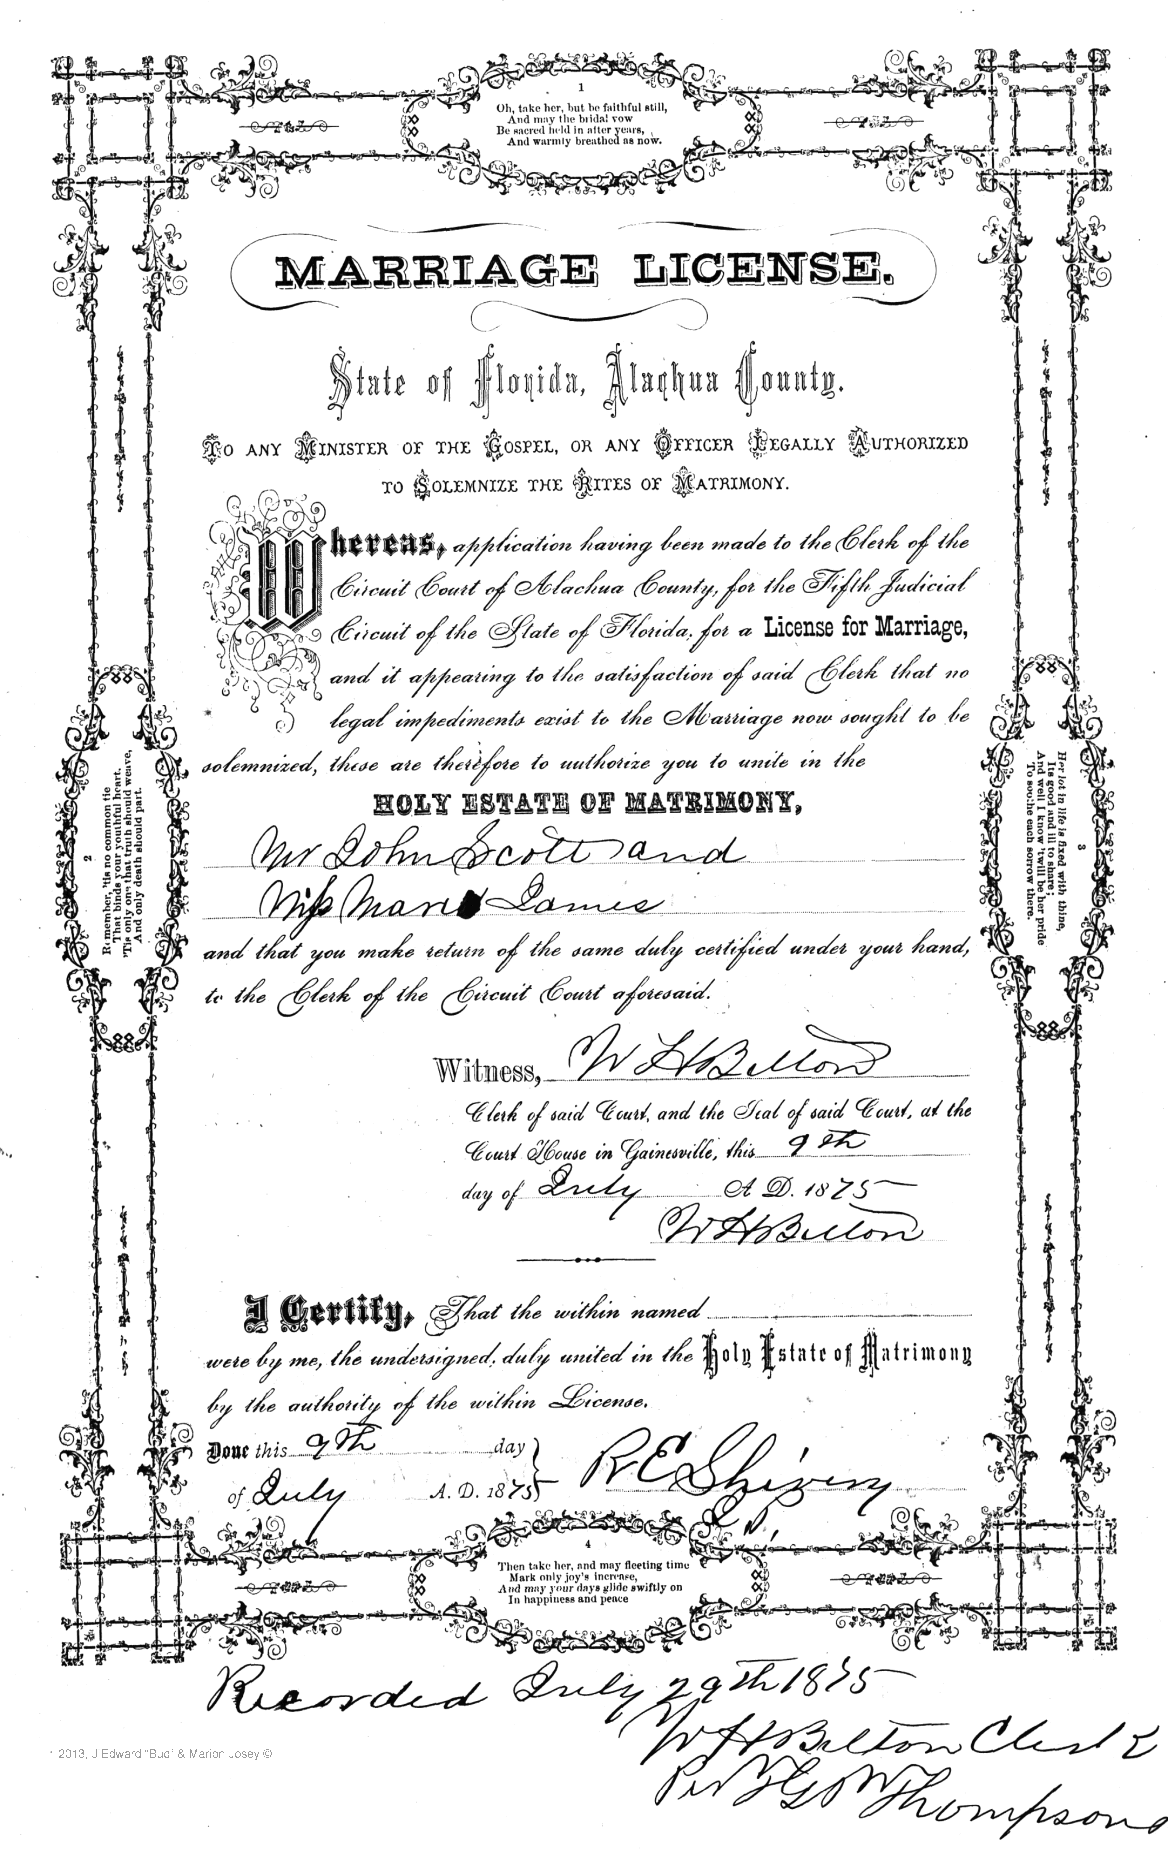 1
Oh, take her, but be faithful still,
And may the bridal vow
Be sacred held in after years,
And warmly breathed as now.
MARRIAGE LICENSE.
State of Florida, Alachua County.
TO ANY MINISTER OF THE GOSPEL, OR ANY OFFICER LEGALLY AUTHORIZED
TO SOLEMNIZE THE RITES OF MATRIMONY.
Whereas, application having been made to the Clerk of the
Circuit Court of Alachua County, for the Fifth Judicial
Circuit of the State of Florida, for a License for Marriage,
and it appearing to the satisfaction of said Clerk that no
legal impediments exist to the Marriage now sought to be
solemnized, these are therefore to authorize you to unite in the
HOLY ESTATE OF MATRIMONY,
Mr John Scott and
Miss James
and that you make return of the same duly certified under your hand,
to the Clerk of the Circuit Court aforesaid.
Witness, W H Belton
Clerk of said Court, and the Seal of said Court, at the
Court House in Gainesville, this 9th
day of July A. D. 1875
W H Belton
I Certify, That the within named
were by me, the undersigned, duly united in the Holy Estate of Matrimony
by the authority of the within License.
Done this 9th day
of July A. D. 1875
R E Shivery
2
Remember, 'tis no common tie
That binds your youthful heart.
'Tis only one that truth should weave,
And only death should part.
3
Her lot in life is fixed with thine,
Its good and ill to share;
And well I know 'twill be her pride
To soothe each sorrow there.
4
Then take her, and may fleeting time
Mark only joy's increase,
And may your days glide swiftly on
In happiness and peace
Recorded July 29th 1875
W H Belton Clerk
Per Thompson
2013, J Edward "Bud" & Marion Josey ©